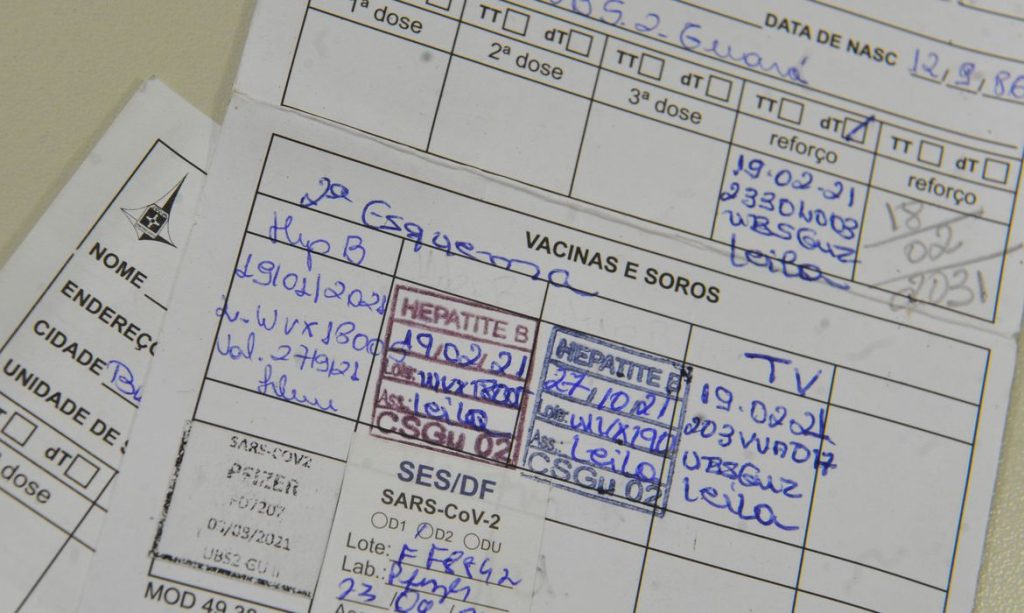 U.B.S. 2. Guará
DATA DE NASC 12, 9, 86
1ª dose
TT dT
2ª dose
TT dT
3ª dose
TT dT
reforço
19.02-21
UBSGUZ
Leila
TT dT
reforço
18
02
2031
NOME
ENDEREÇO
CIDADE
UNIDADE DE S
dT
dose
VACINAS E SOROS
2º Esquema
Hep B
19/01/2021
Val. 27/9/21
HEPATITE B
19/02/21
Lote:
Ass.: Leila
CSGu 02
HEPATITE B
27/10/21
Lote: WVX190
Ass.: Leila
CSGu 02
TV
19.02.21
UBSGUZ
Leila
SARS-COV2
PFIZER
UBS2-GU II
SES/DF
SARS-CoV-2
D1 D2 DU
Lote:
Lab.:
MOD 49.